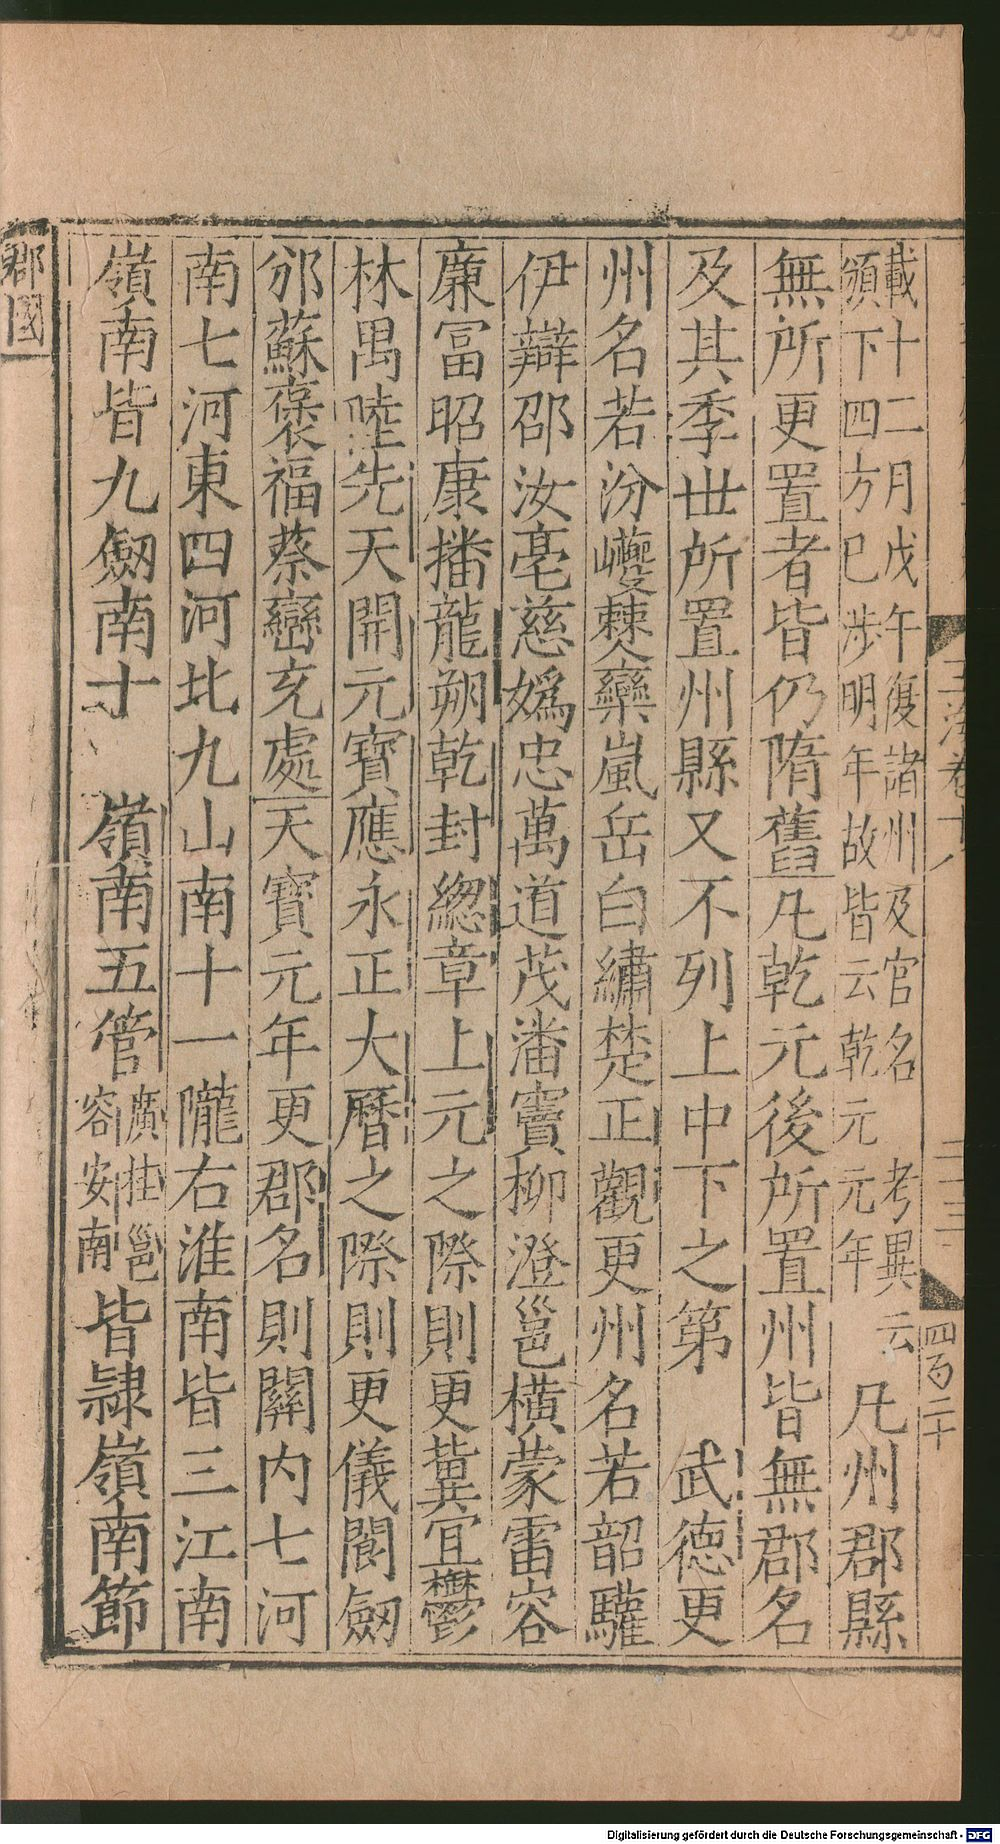 載十二月戊午復諸州及官名　考異云
頒下四方巳涉明年故皆云乾元元年
凡州郡縣
無所更置者皆仍隋舊凡乾元後所置州皆無郡名
及其季世所置州縣又不列上中下之第　武德更
州名若汾夔僰欒嵐岳白繡楚正觀更州名若韶驩
伊辯邵汝亳慈嬀忠萬道茂潘竇柳澄邕橫蒙雷容
廉富昭康播龍朔乾封緫章上元之際則更冀宜鬱
林禺陸先天開元寶應永正大曆之際則更儀閬劒
邠蘇褒福蔡巒兖處天寶元年更郡名則關内七河
南七河東四河北九山南十一隴右淮南皆三江南
嶺南皆九劒南十　嶺南五管
廣桂邕
容安南
皆隸嶺南節
郡國
玉海卷十八
四百二十
Digitalisierung gefördert durch die Deutsche Forschungsgemeinschaft - DFG